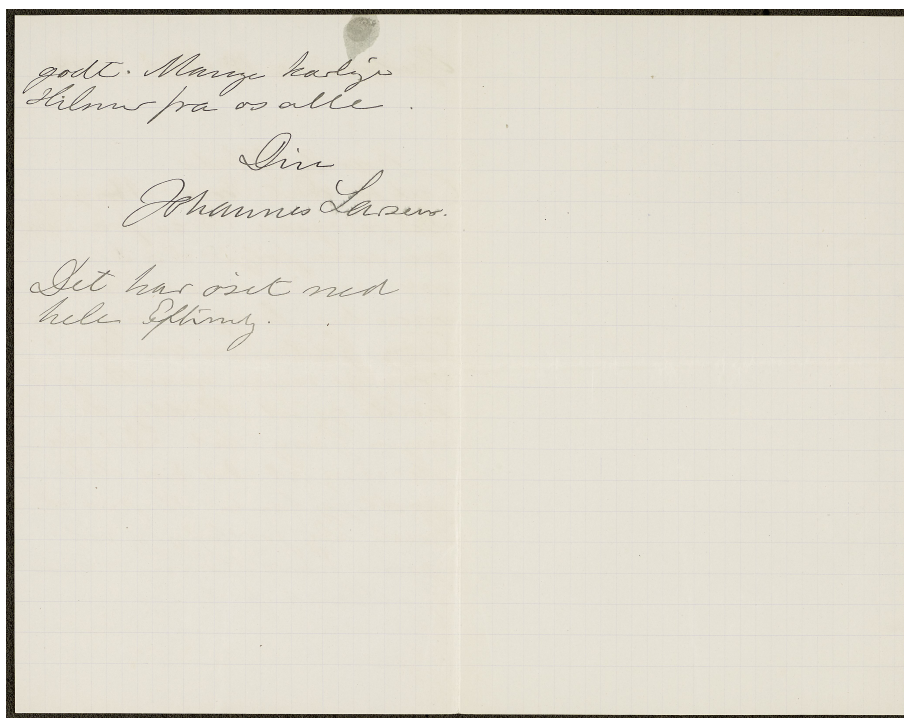 godt. Mange kærlige
Hilsner fra os alle.
Din
Johannes Larsen.
Det har øset ned
hele Eftermdg.